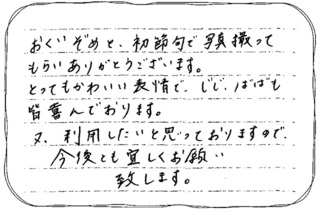 おくいぞめと、初節句で写真撮って
もらいありがとうございます。
とってもかわいい表情で、じじ、ばばも
皆喜んでおります。
又、利用したいと思っておりますので、
今後とも宜しくお願い
致します。